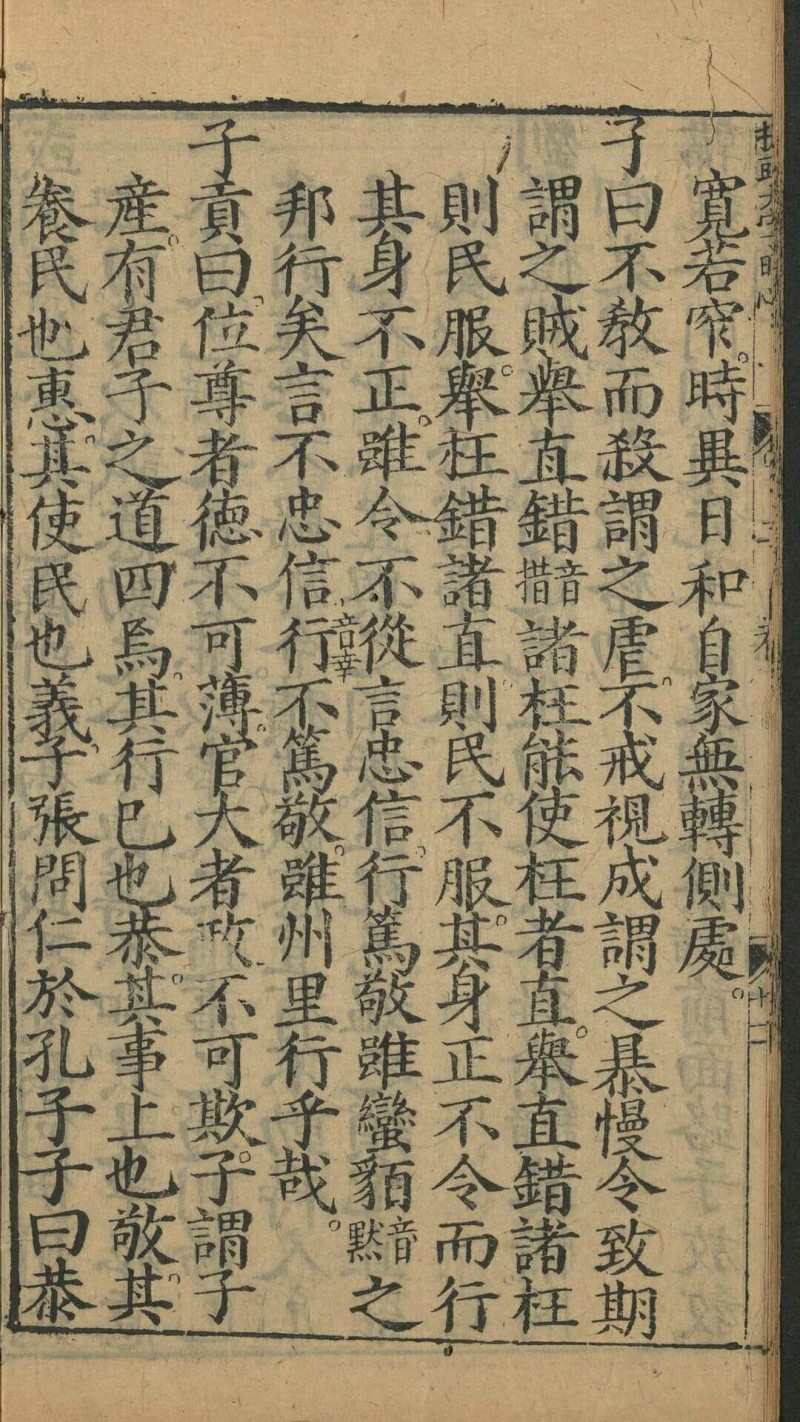 寬若窄。時異日和自家無轉側處。
子曰不教而殺謂之虐。不戒視成謂之暴慢令致期
謂之賊舉直錯音措諸枉能使枉者直。舉直錯諸枉
則民服。舉枉錯諸直則民不服。其身正不令而行
其身不正。雖令不從言忠信。行篤敬雖蠻貊音默之
邦行矣言不忠信行音幸不篤敬。雖州里行乎哉。
子貢曰。位尊者德不可薄。官大者政不可欺。子謂子
産。有君子之道四焉。其行己也恭。其事上也敬。其
養民也惠。其使民也義。子張問仁於孔子子曰恭